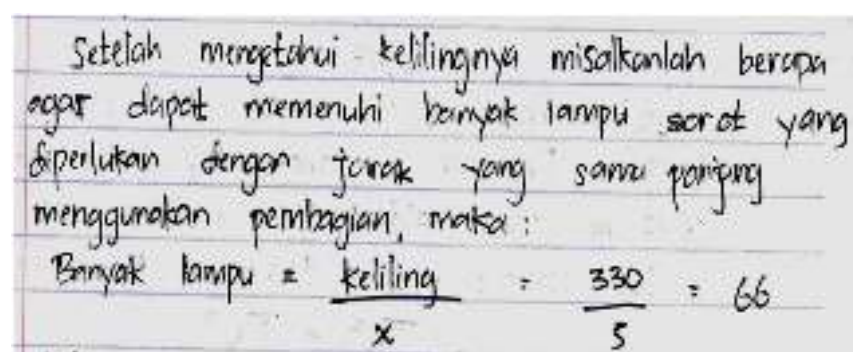 Setelah mengetahui kelilingnya misalkanlah berapa
agar dapat memenuhi banyak lampu sorot yang
diperlukan dengan jarak yang sama panjang
menggunakan pembagian, maka :
Banyak lampu = keliling / x = 330 / 5 = 66